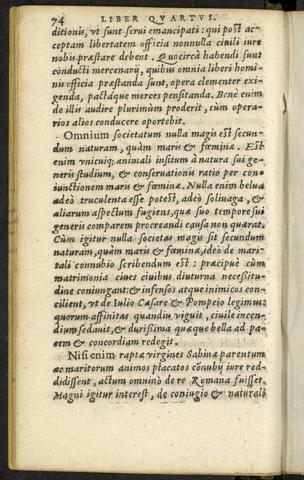 74 LIBER QVARTVS.
ditionis, vt sunt serui emancipati: qui post ac-
ceptam libertatem officia nonnulla ciuili iure
nobis præstare debent. Quocircà habendi sunt
conducti mercenarij, quibus omnia liberi homi-
nis officia præstanda sunt, opera clementer exi-
genda, pactáque merces pensitanda. Bene enim
de illis audire plurimùm proderit, cùm opera-
rios alios conducere oportebit.
Omnium societatum nulla magis est secun-
dum naturam, quàm maris & fœminæ. Est
enim vnicuiq; animali insitum à natura sui ge-
neris studium, & conseruationis ratio per con-
iunctionem maris & fœminæ. Nulla enim belua
adeò truculenta esse potest, adeò soliuaga, &
aliarum aspectum fugiens, quæ suo tempore sui
generis comparem procreandi causa non quærat.
Cùm igitur nulla societas magis sit secundum
naturam, quàm maris & fœminæ, ideo de mari-
tali connubio scribendum est: præcipuè cùm
matrimonia ciues ciuibus diuturna necessitu-
dine coniungant: & infensos atque inimicos con-
cilient, vt de Iulio Cæsare & Pompeio legimus:
quorum affinitas quandiu viguit, ciuile incen-
dium sedauit, & durißima quæque bella ad pa-
cem & concordiam redegit.
Nisi enim raptæ virgines Sabinæ parentum
ac maritorum animos placatos cõnubij iure red-
didissent, actum omninò de re Romana fuisset.
Magni igitur interest, de coniugio & naturali